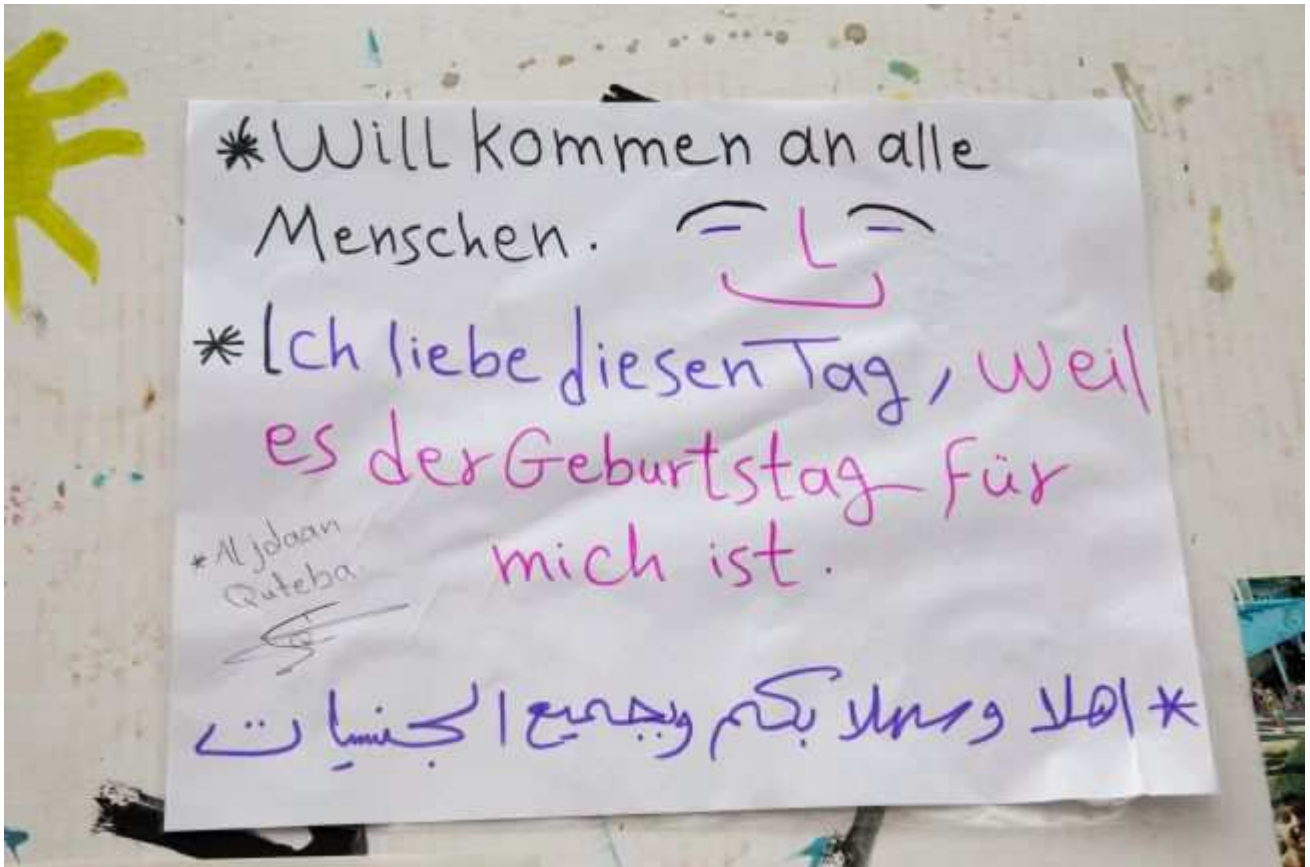 *Willkommen an alle
Menschen.
*Ich liebe diesen Tag, weil
es der Geburtstag für
mich ist.
*Aljdaan
Quteba
*اهلا وسهلا بكم وبجميع الجنسيات